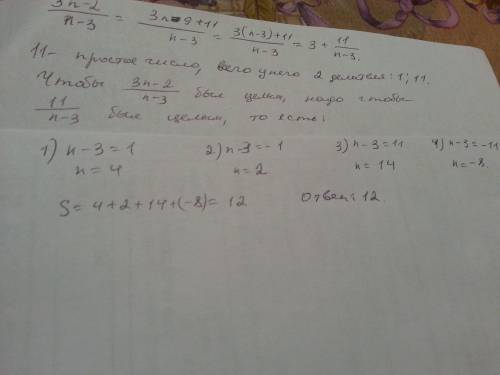 (3n-2)/(n-3) = (3n-9+11)/(n-3) = (3(n-3)+11)/(n-3) = 3 + 11/(n-3).
11 - простое число, всего у него 2 делителя: 1; 11.
Чтобы (3n-2)/(n-3) был целым, надо чтобы
11/(n-3) был целым, то есть:
1) n-3=1 2) n-3=-1 3) n-3=11 4) n-3=-11
n=4 n=2 n=14 n=-8.
S=4+2+14+(-8)=12 Ответ: 12.